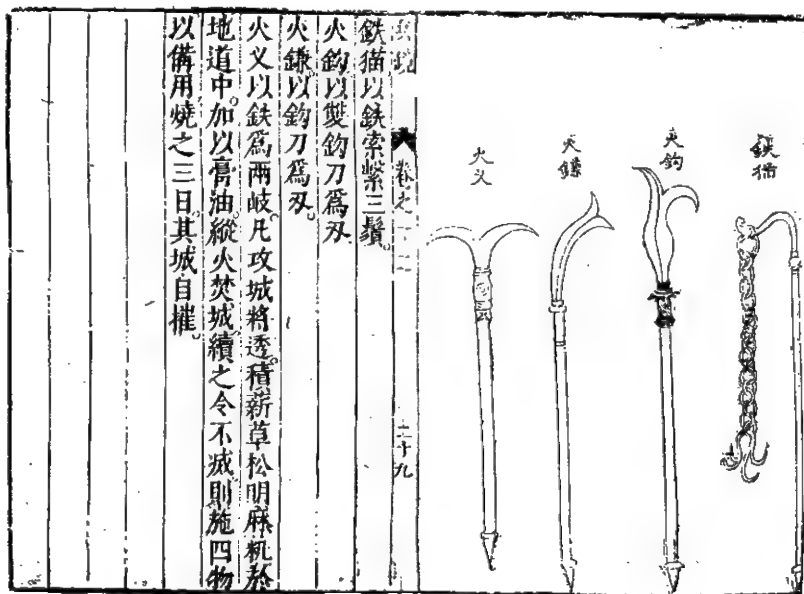 鉄猫
火鈎
火鐮
火叉
卷之十二
二十九
鉄猫以鉄索繫三鬚。
火鈎以雙鈎刀爲刃
火鐮以鈎刀爲刃。
火叉以鉄爲兩岐。凡攻城將透。積薪草松明麻籸於
地道中。加以膏油。縱火焚城。續之令不滅。則施四物
以備用。燒之三日。其城自摧。